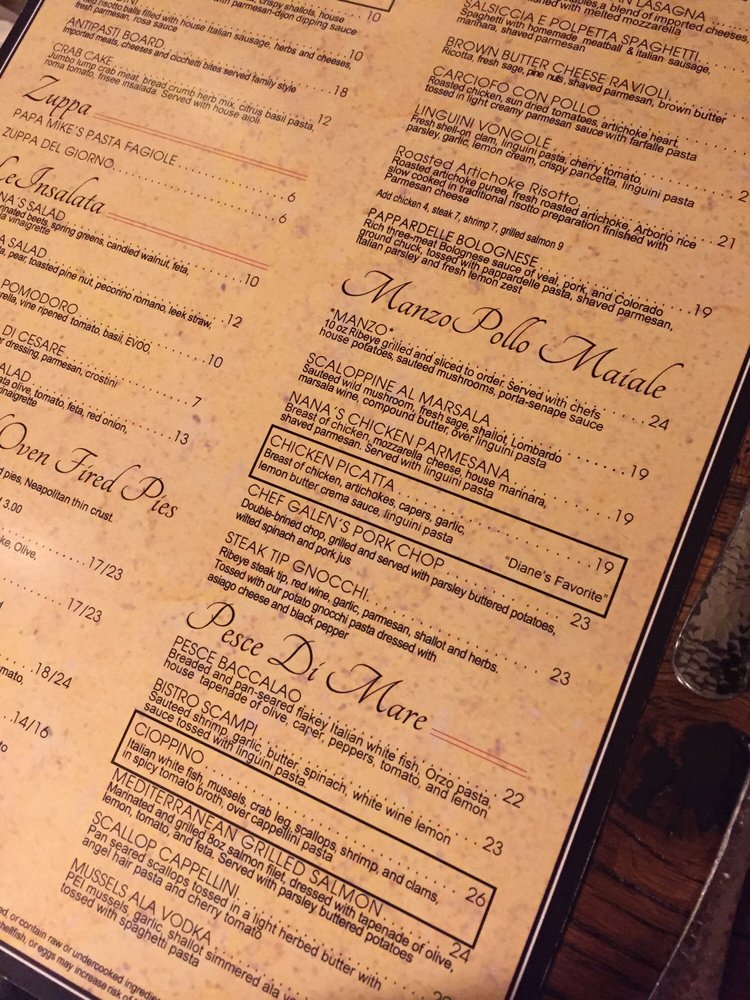 crispy shallots, house
with parmesan-dijon dipping sauce
10
ed risotto balls filled with house Italian sausage, herbs and cheeses,
fresh parmesan, rosa sauce
10
ANTIPASTI BOARD
Imported meats, cheeses and cicchetti bites served family style
18
CRAB CAKE
Jumbo lump crab meat, bread crumb herb mix, citrus basil pasta,
roma tomato, frisee insalada. Served with house aioli
12
Zuppa
PAPA MIKE'S PASTA FAGIOLE
6
ZUPPA DEL GIORNO
6
Le Insalata
NA'S SALAD
inated beets, spring greens, candied walnut, feta,
a vinaigrette
10
A SALAD
a, pear, toasted pine nut, pecorino romano, leek straw,
12
POMODORO
rella, vine ripened tomato, basil, EVOO,
10
DI CESARE
r dressing, parmesan, crostini
7
ALAD
ata olive, tomato, feta, red onion,
vinaigrette
13
Oven Fired Pies
d pies, Neapolitan thin crust.
3.00
ke, Olive,
17/23
17/23
18/24
mato,
14/16
LASAGNA
a blend of imported cheeses
with melted mozzarella
SALSICCIA E POLPETTA SPAGHETTI
Spaghetti with homemade meatball & italian sausage,
marinara, shaved parmesan
BROWN BUTTER CHEESE RAVIOLI
Ricotta, fresh sage, pine nuts, shaved parmesan, brown butter
CARCIOFO CON POLLO
Roasted chicken, sun dried tomatoes, artichoke heart,
tossed in light creamy parmesan sauce with farfalle pasta
LINGUINI VONGOLE
Fresh shell-on clam, linguini pasta, cherry tomato,
parsley, garlic, lemon cream, crispy pancetta, linguini pasta
2
Roasted Artichoke Risotto
Roasted artichoke puree, fresh roasted artichoke, Arborio rice
slow cooked in traditional risotto preparation finished with
Parmesan cheese
21
Add chicken 4, steak 7, shrimp 7, grilled salmon 9
PAPPARDELLE BOLOGNESE
Rich three-meat Bolognese sauce of veal, pork, and Colorado
ground chuck, tossed with pappardelle pasta, shaved parmesan,
Italian parsley and fresh lemon zest
19
Manzo Pollo Maiale
*MANZO*
10 oz Ribeye grilled and sliced to order. Served with chefs
house potatoes, sauteed mushrooms, porta-senape sauce
24
SCALOPPINE AL MARSALA
Sauteed wild mushroom, fresh sage, shallot, Lombardo
marsala wine, compound butter, over linguini pasta
19
NANA'S CHICKEN PARMESANA
Breast of chicken, mozzarella cheese, house marinara,
shaved parmesan. Served with linguini pasta
19
CHICKEN PICATTA
Breast of chicken, artichokes, capers, garlic,
lemon butter crema sauce, linguini pasta
19
"Diane's Favorite"
CHEF GALEN'S PORK CHOP
Double-brined chop, grilled and served with parsley buttered potatoes,
wilted spinach and pork jus
23
STEAK TIP GNOCCHI
Ribeye steak tip, red wine, garlic, parmesan, shallot and herbs.
Tossed with our potato gnocchi pasta dressed with
asiago cheese and black pepper
23
Pesce Di Mare
PESCE BACCALAO
Breaded and pan-seared flakey Italian white fish, Orzo pasta,
house tapenade of olive, caper, peppers, tomato, and lemon
22
BISTRO SCAMPI
Sauteed shrimp, garlic, butter, spinach, white wine lemon
sauce tossed with linguini pasta
23
CIOPPINO
Italian white fish, mussels, crab leg, scallops, shrimp, and clams,
in spicy tomato broth, over cappellini pasta
26
MEDITERRANEAN GRILLED SALMON
Marinated and grilled 8oz salmon filet, dressed with tapenade of olive,
lemon, tomato, and feta. Served with parsley buttered potatoes
24
SCALLOP CAPPELLINI
Pan seared scallops tossed in a light herbed butter with
angel hair pasta and cherry tomato
MUSSELS ALA VODKA
PEI mussels, garlic, shallot simmered ala vo
tossed with spaghetti pasta
ed, or contain raw or undercooked ingredie
shellfish, or eggs may increase risk of